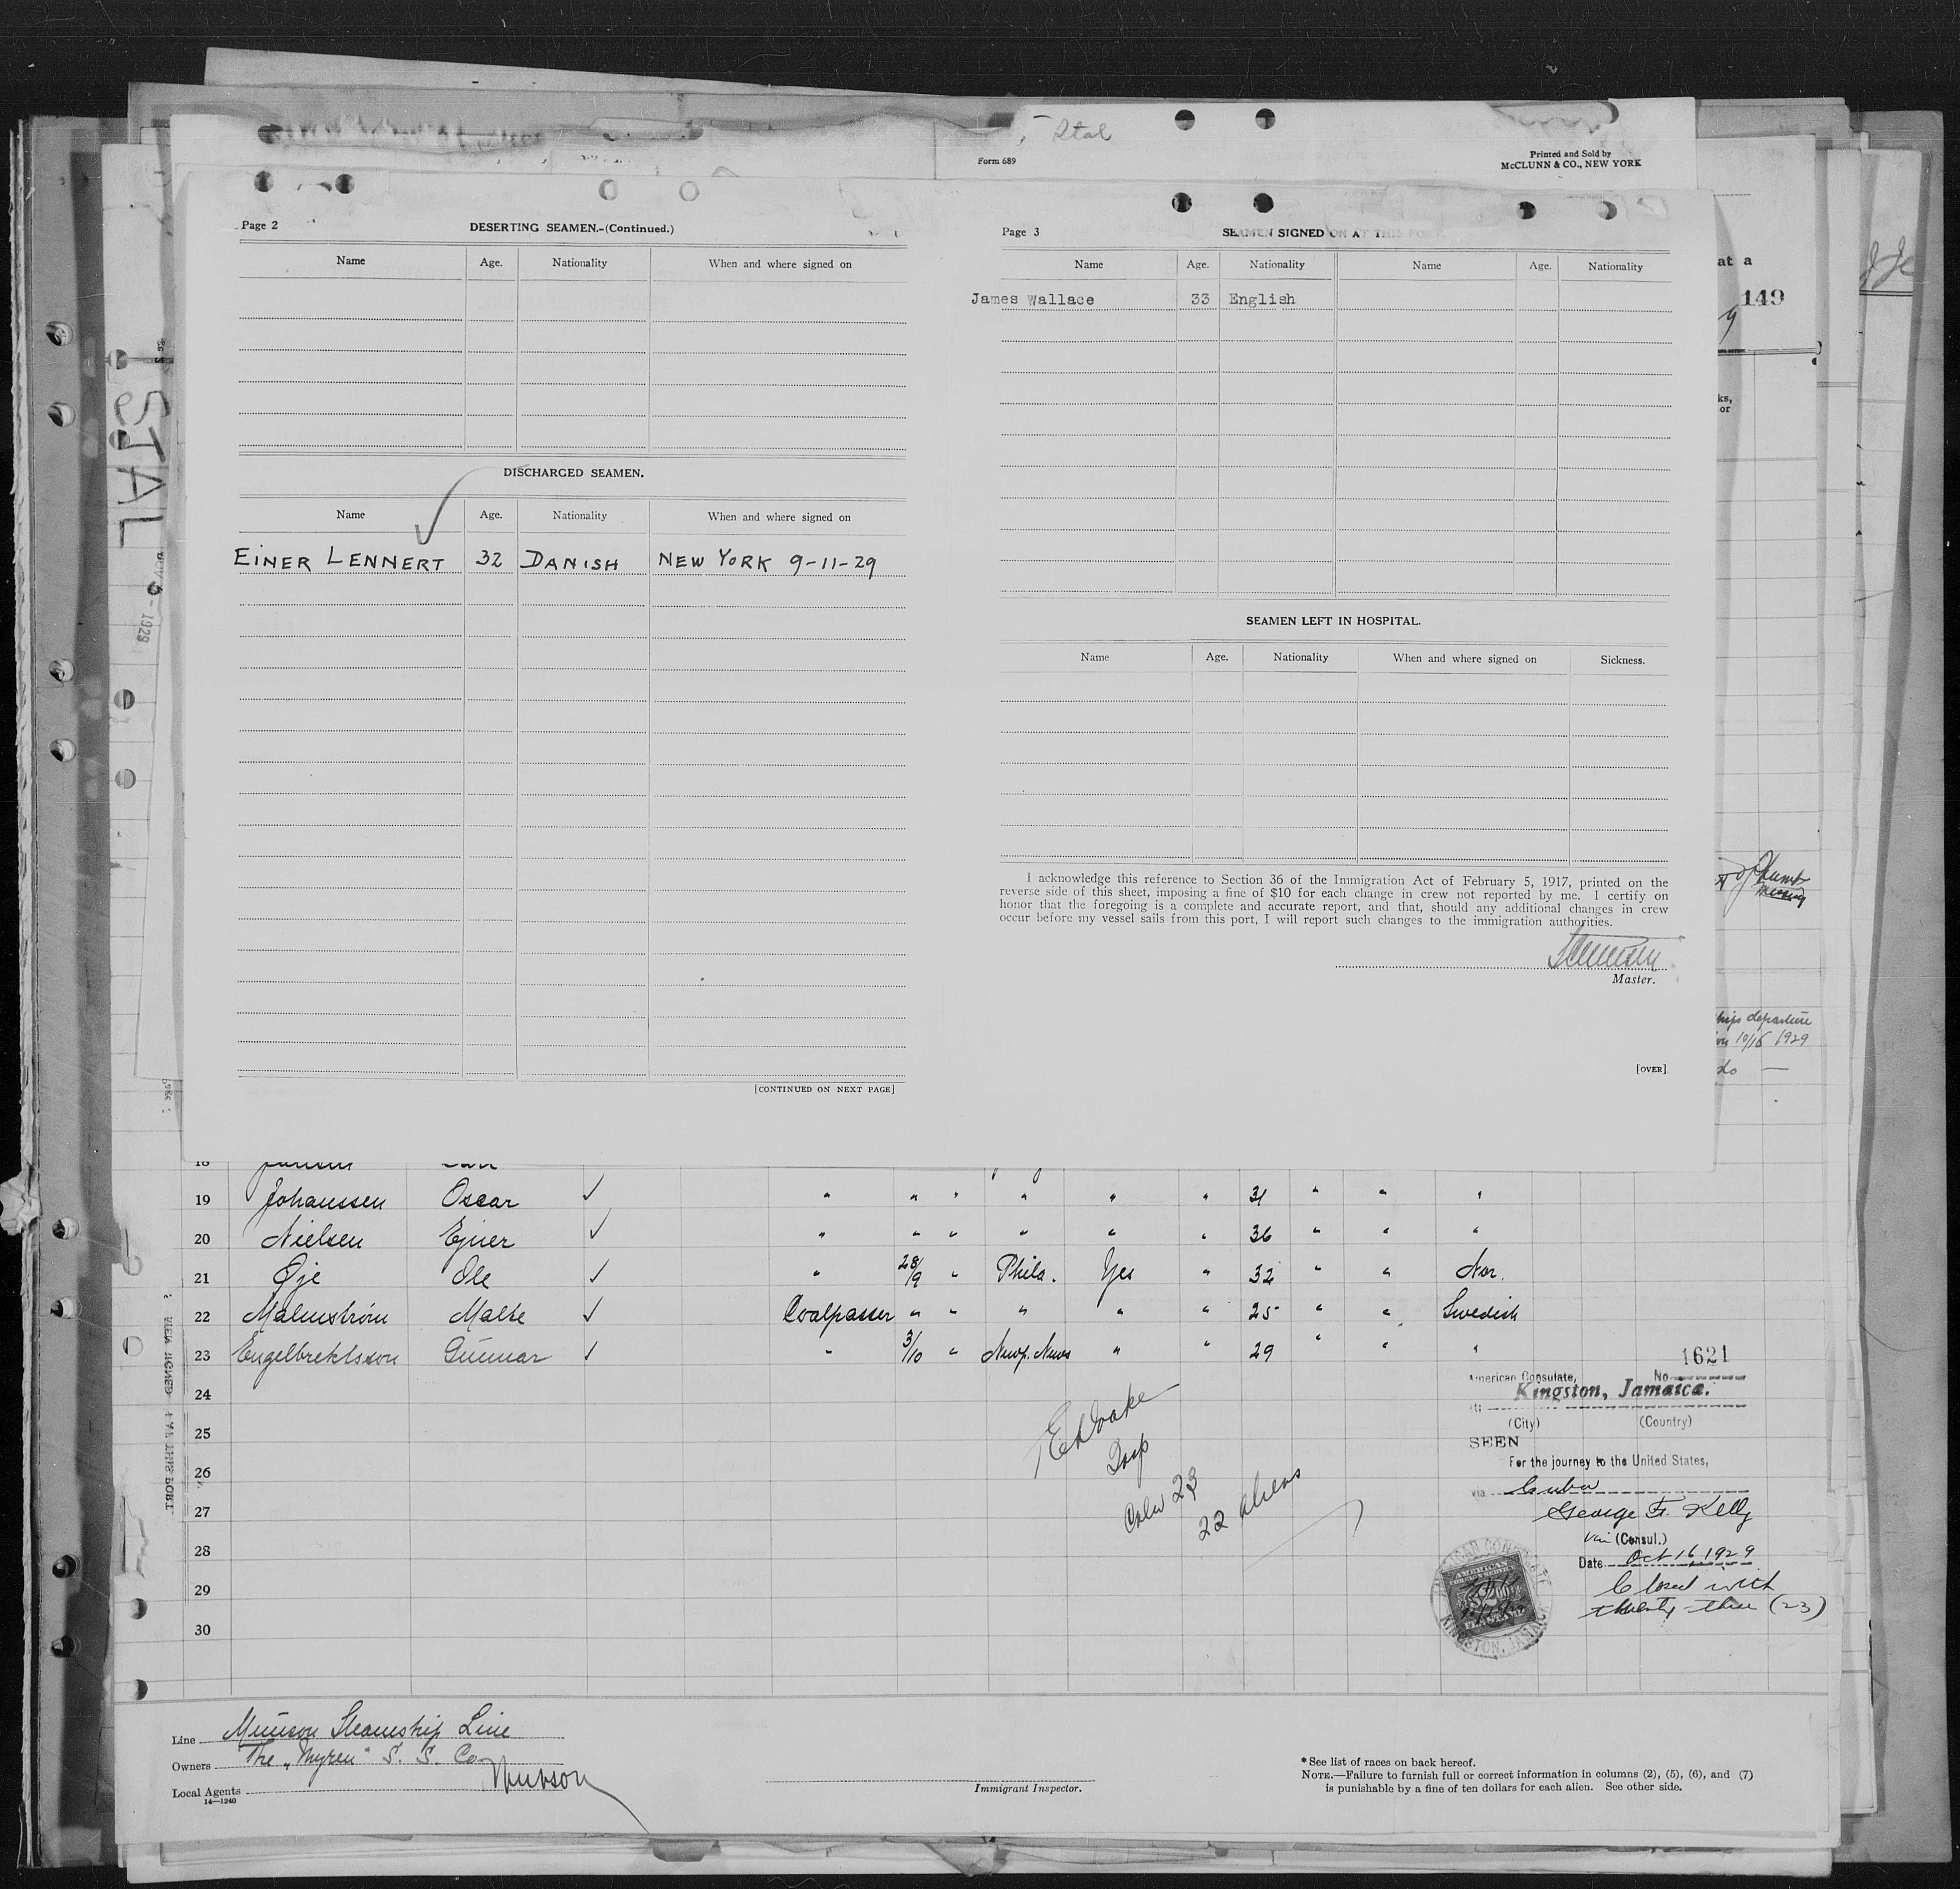 Form 689
Printed and Sold by
McCLUNN & CO., NEW YORK
Page 2
DESERTING SEAMEN.-(Continued.)
Name Age. Nationality When and where signed on
DISCHARGED SEAMEN.
Name Age. Nationality When and where signed on
EINER LENNERT 32 DANISH NEW YORK 9-11-29
[CONTINUED ON NEXT PAGE]
Page 3
SEAMEN SIGNED ON AT THIS PORT
Name Age. Nationality Name Age. Nationality
James Wallace 33 English
SEAMEN LEFT IN HOSPITAL.
Name Age. Nationality When and where signed on Sickness.
I acknowledge this reference to Section 36 of the Immigration Act of February 5, 1917, printed on the
reverse side of this sheet, imposing a fine of $10 for each change in crew not reported by me. I certify on
honor that the foregoing is a complete and accurate report, and that, should any additional changes in crew
occur before my vessel sails from this port, I will report such changes to the immigration authorities.
Master.
[OVER]
at a
149
ks,
or
ships departure
10/16 1929
do —
ISTAL
1929
18
19 Johanssen Oscar ✓ " " " " " " 31 " " "
20 Nielsen Ejner ✓ " " " " " " 36 " " "
21 Øje Ole ✓ " 28/9 " Phila. Yes " 32 " " Nor.
22 Malmstrøm Malte ✓ Coalpasser " " " " " 25 " " Swedish
23 Engelbrektsson Gunnar ✓ " 3/10 " Newp. News " " 29 " " "
24
25
26
27
28
29
30
Insp
Crew 23
22 aliens
1621
American Consulate, No.
Kingston, Jamaica.
(City) (Country)
SEEN
For the journey to the United States,
via Cuba
George F. Kelly
Vice (Consul.)
Date Oct 16, 1929
Closed with
twenty three (23)
AMERICAN CONSULATE
KINGSTON, JAMAICA
Line Munson Steamship Line
Owners The "Myren" S. S. Co.
Local Agents Munson
14—1240
Immigrant Inspector.
* See list of races on back hereof.
NOTE.—Failure to furnish full or correct information in columns (2), (5), (6), and (7)
is punishable by a fine of ten dollars for each alien. See other side.